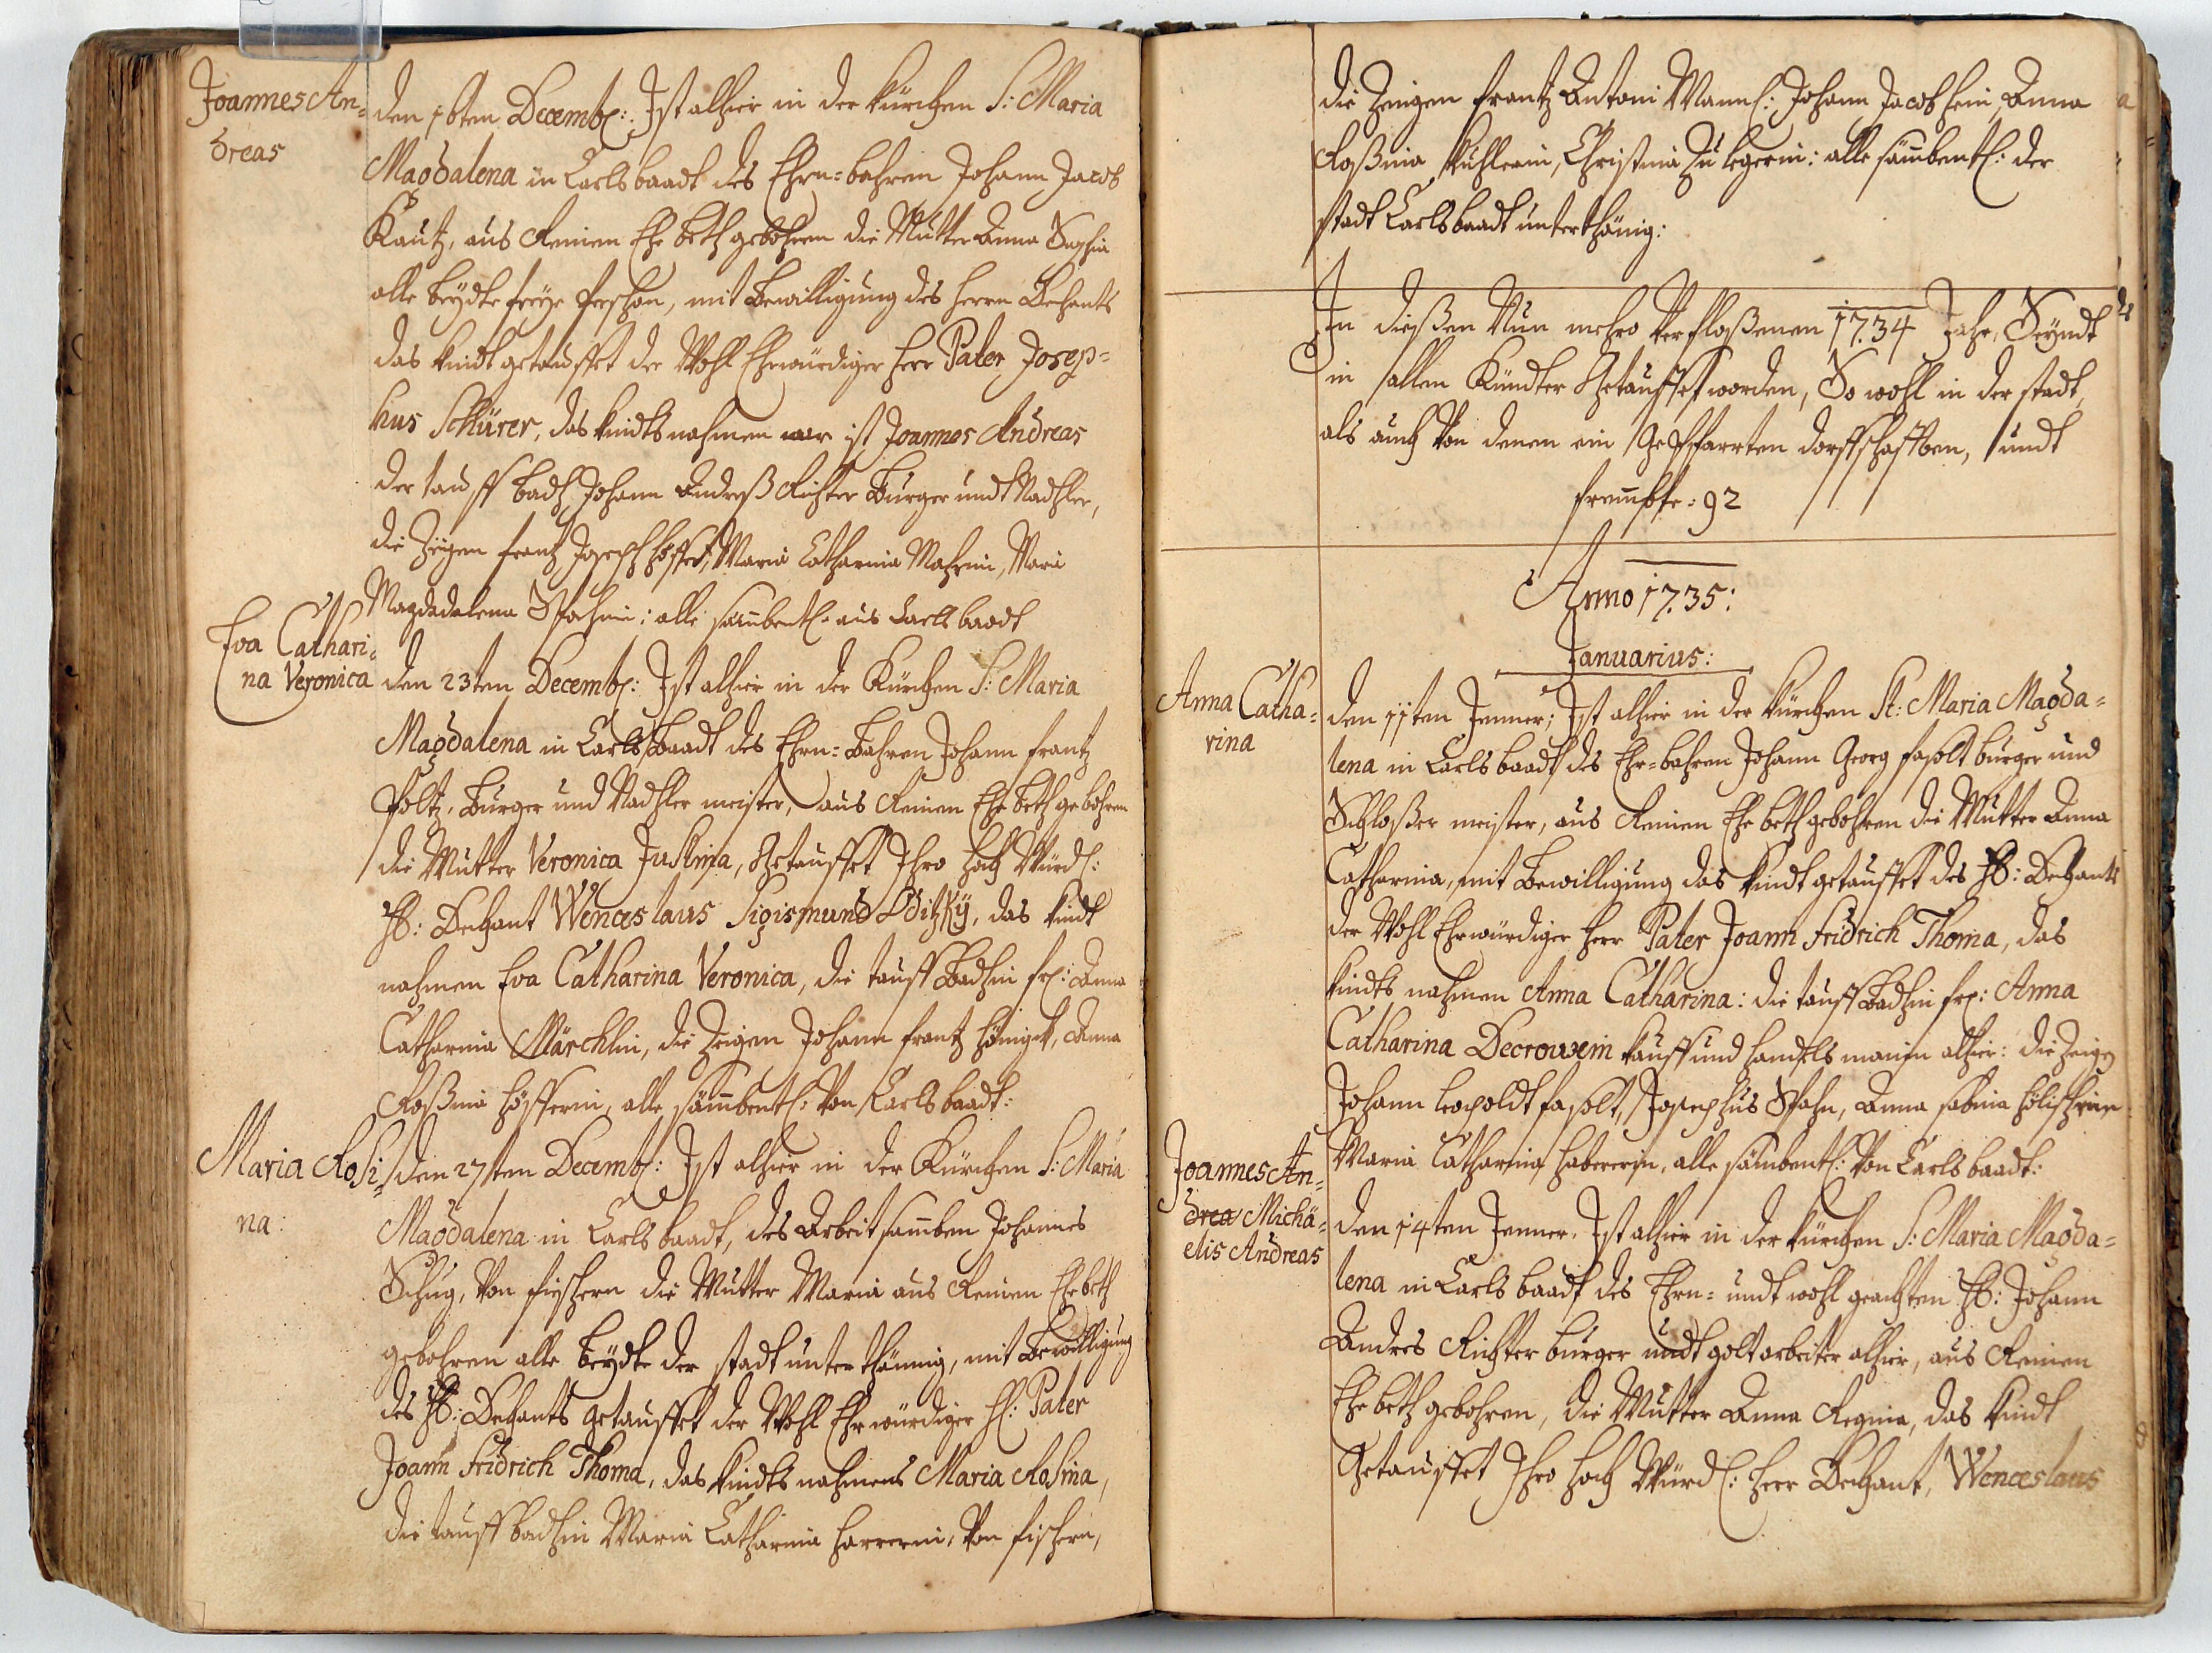 Joannes An=
dreas
den 16ten Decemb: Ist alhier in der Kürchen S: Maria
Magdalena in Carlsbaadt des Ehrn=bahren Johann Jacob
Kautz, aus Reinen Ehe beth gebohren die Mutter Anna Sophia
alle beydte freye Persohn, mit Bewilligung des Herrn Dechants
das Kindt getauffet der Wohl Ehrwürdiger Herr Pater Josep=
hus Schürer, das Kindts nahmen ist Joannes Andreas
der tauff badh Johann Andreß Richter Burger undt Nadhler,
die Zeigen Frantz Joseph Höffer, Maria Catharina Mahrin, Maria
Magdadalena Spahnin: alle sambentl: aus Carlsbaadt
Eva Cathari=
na Veronica
den 23ten Decemb: Ist alhier in der Kürchen S: Maria
Magdalena in Carlsbaadt des Ehrn=bahren Johann Frantz
Poltz, Burger und Nadhler meister, aus Reinen Ehe beth gebohren
die Mutter Veronica Justina, Getauffet Ihro Hoch Würd:
H: Dechant Wenceslaus Sigismund Ditzky, das Kindt
nahmen Eva Catharina Veronica, die tauff Badhin fr: Anna
Catharina Märchlin, die Zeigen Johann Frantz Hönigck, Anna
Roßina Höfferin, alle sämbentl: Von Carlsbaadt:
Maria Rosi=
na:
den 27ten Decemb: Ist alhier in der Kürchen S: Maria
Magdalena in Carlsbaadt, des Arbeitsamben Johannes
Schug, Von Fischern die Mutter Maria aus Reinen Ehebeth
gebohren alle Beydte der stadt unterthännig, mit Bewilligung
des H: Dechants getauffet der Wohl Ehrwürdiger H: Pater
Joann Fridrich Thoma, das Kindts nahmens Maria Rosina,
die tauff badhin Maria Catharina Harrerin, Von fischern,
die Zeigen Frantz Antoni Mannl: Johann Jacob Hein, Anna
Roßina Kühlerin, Christina Zulegerin: alle sämbentl: der
stadt Carlsbaadt unterthänig:
In dießen Nun mehro Verfloßenen 17.34 Jahr, Seyndt
in allen Kündter Getauffet worden, So wohl in der stadt,
als auch Von denen ein Gepffarrten dorffschafften, undt
frembte: 92
Anno 17.35:
Januarius:
Anna Catha=
rina
den 11ten Jenner; Ist alhier in der Kürchen St: Maria Magda=
lena in Carlsbaadt des Ehr=bahren Johann Georg Fasolt burger und
Schloßer meister, aus Reinen Ehe beth gebohren die Mutter Anna
Catharina, mit Bewilligung das Kindt getauffet des H: Dechants
der Wohl Ehrwürdiger Herr Pater Joann Fridrich Thoma, das
Kindts nahmen Anna Catharina: die tauff Badhin fr: Anna
Catharina Decrowein Kauff und Handtels manin alhier: die Zeigen
Johann Leopoldt Fasolt, Josephus Spahn, Anna Sabina
Maria Catharina Habererin, alle sämbentl: Von Carlsbaadt:
Joannes An=
drea Michä=
elis Andreas
den 14ten Jenner. Ist alhier in der Kürchen S: Maria Magda=
lena in Carlsbaadt des Ehrn= undt wohl geachten H: Johann
Andres Richter burger undt goltarbeiter alhier, aus Reinen
Ehe beth gebohren, die Mutter Anna Regina, das Kindt
Getauffet Ihro Hoch Würd: Herr Dechant, Wenceslaus